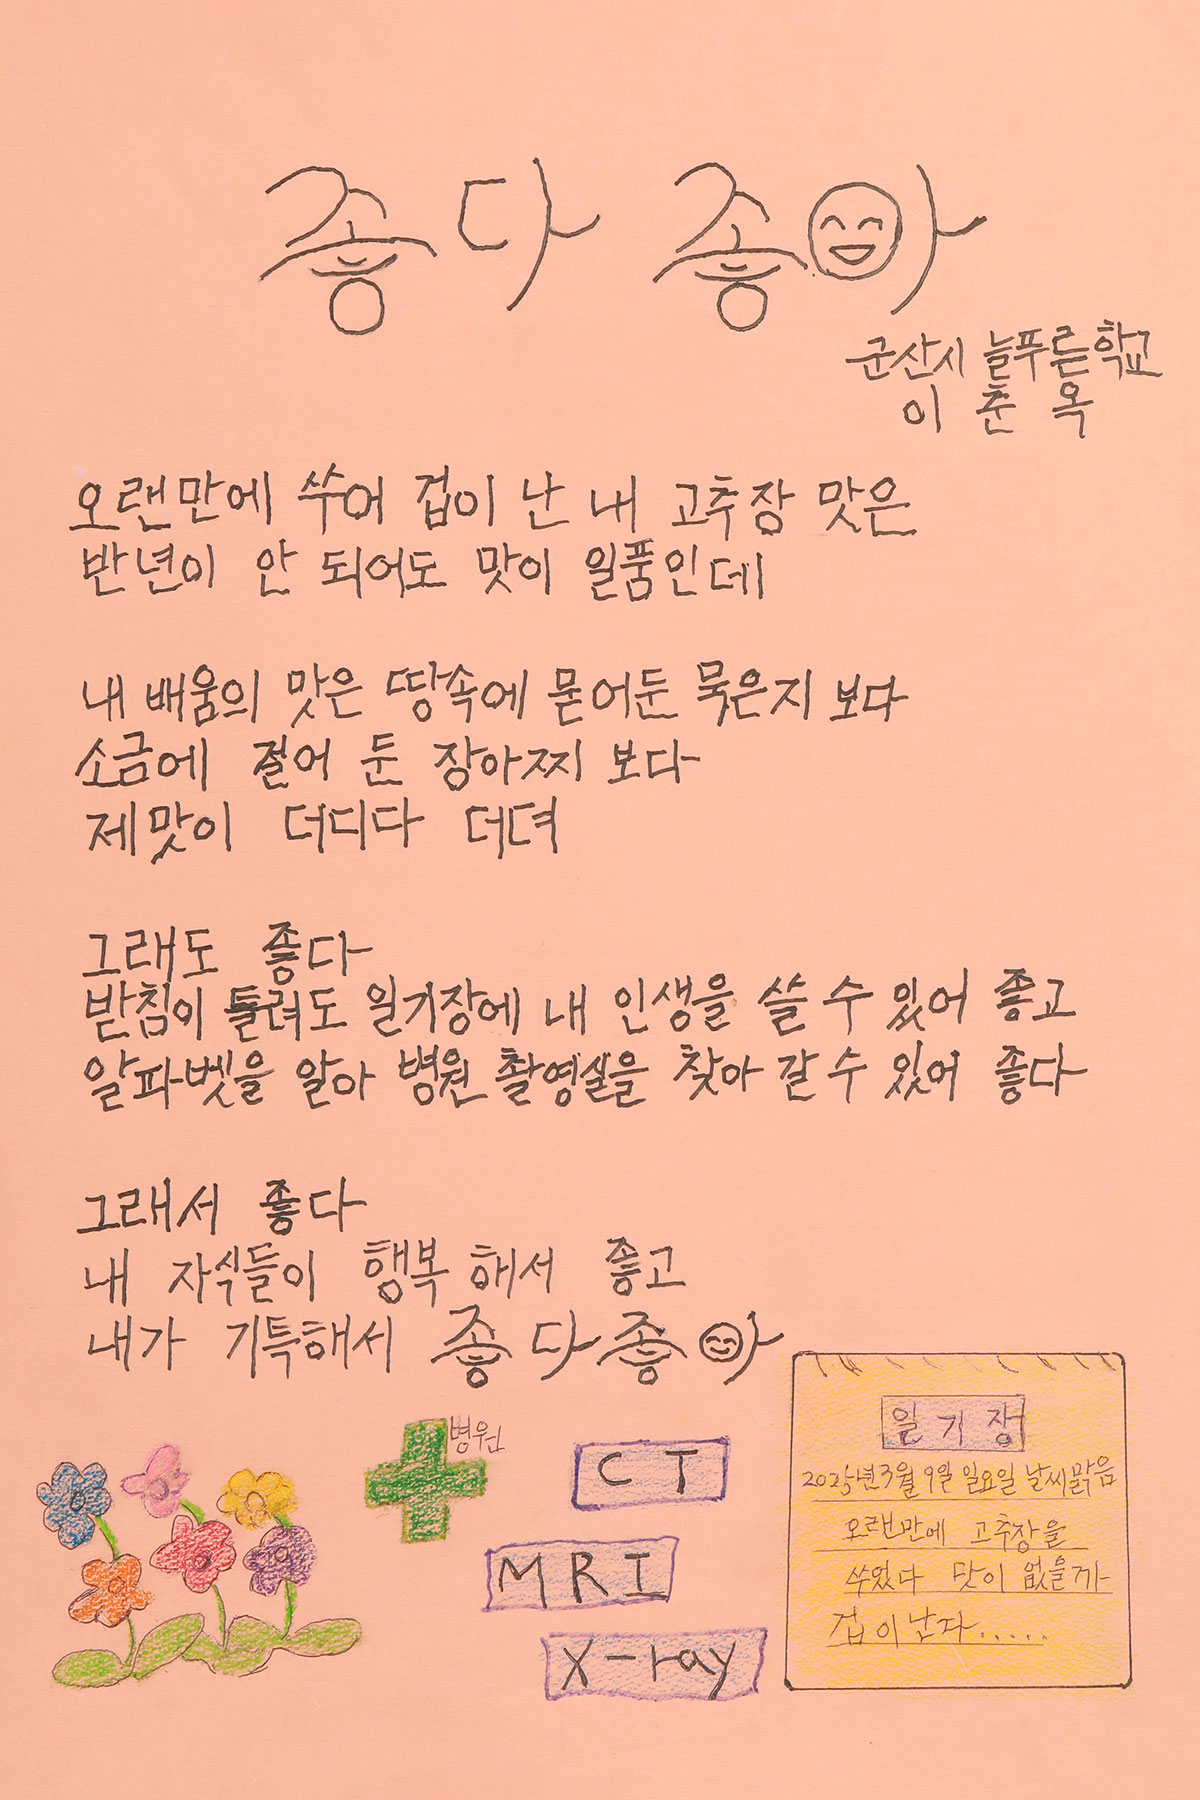 좋다 좋아
군산시 늘푸른학교
이춘옥
오랜만에 쑤어 겁이 난 내 고추장 맛은
반년이 안 되어도 맛이 일품인데
내 배움의 맛은 땅속에 묻어둔 묵은지 보다
소금에 절어 둔 장아찌 보다
제맛이 더디다 더뎌
그래도 좋다
받침이 틀려도 일기장에 내 인생을 쓸 수 있어 좋고
알파벳을 알아 병원 촬영실을 찾아 갈 수 있어 좋다
그래서 좋다
내 자식들이 행복해서 좋고
내가 기특해서 좋다좋아
병원
CT
MRI
X-ray
일기장
2025년 3월 9일 일요일 날씨맑음
오랜만에 고추장을
쑤었다 맛이 없을까
겁이난다.....